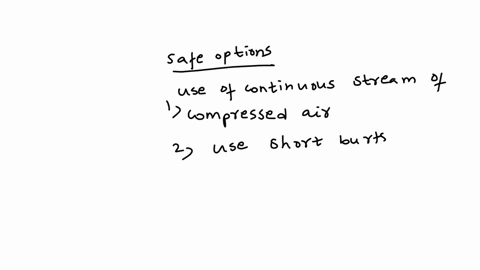 safe options
use of continuous stream of
1) compressed air
2) use short burts